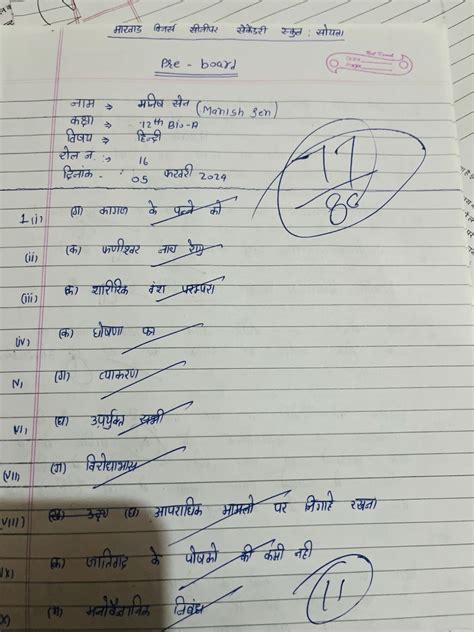 मारवाड विनर्स सीनीयर सेकेंडरी स्कुल : सोयला
Pre - board
नाम ⇒ मनिष सेन (Manish Sen)
कक्षा ⇒ 12th Bio-A
विषय ⇒ हिन्दी
रोल न. :- 16
दिनांक - : 05 फरवरी 2024
77
80
1 (i) (ग) कागज के पन्ने को
(ii) (क) फणीश्वर नाथ रेणु
(iii) क) शारीरिक वंश परम्परा
(iv) (क) घोषणा का
v, (ग) व्याकरण
VI, (घ) उपर्युक्त सभी
(VII) (ग) विरोधाभास
(VIII) (घ) आपराधिक मामलो पर निगाहे रखना
IX) क) जातिवाद के पोषको की कमी नही
X) मनोवैज्ञानिक निबंध
11